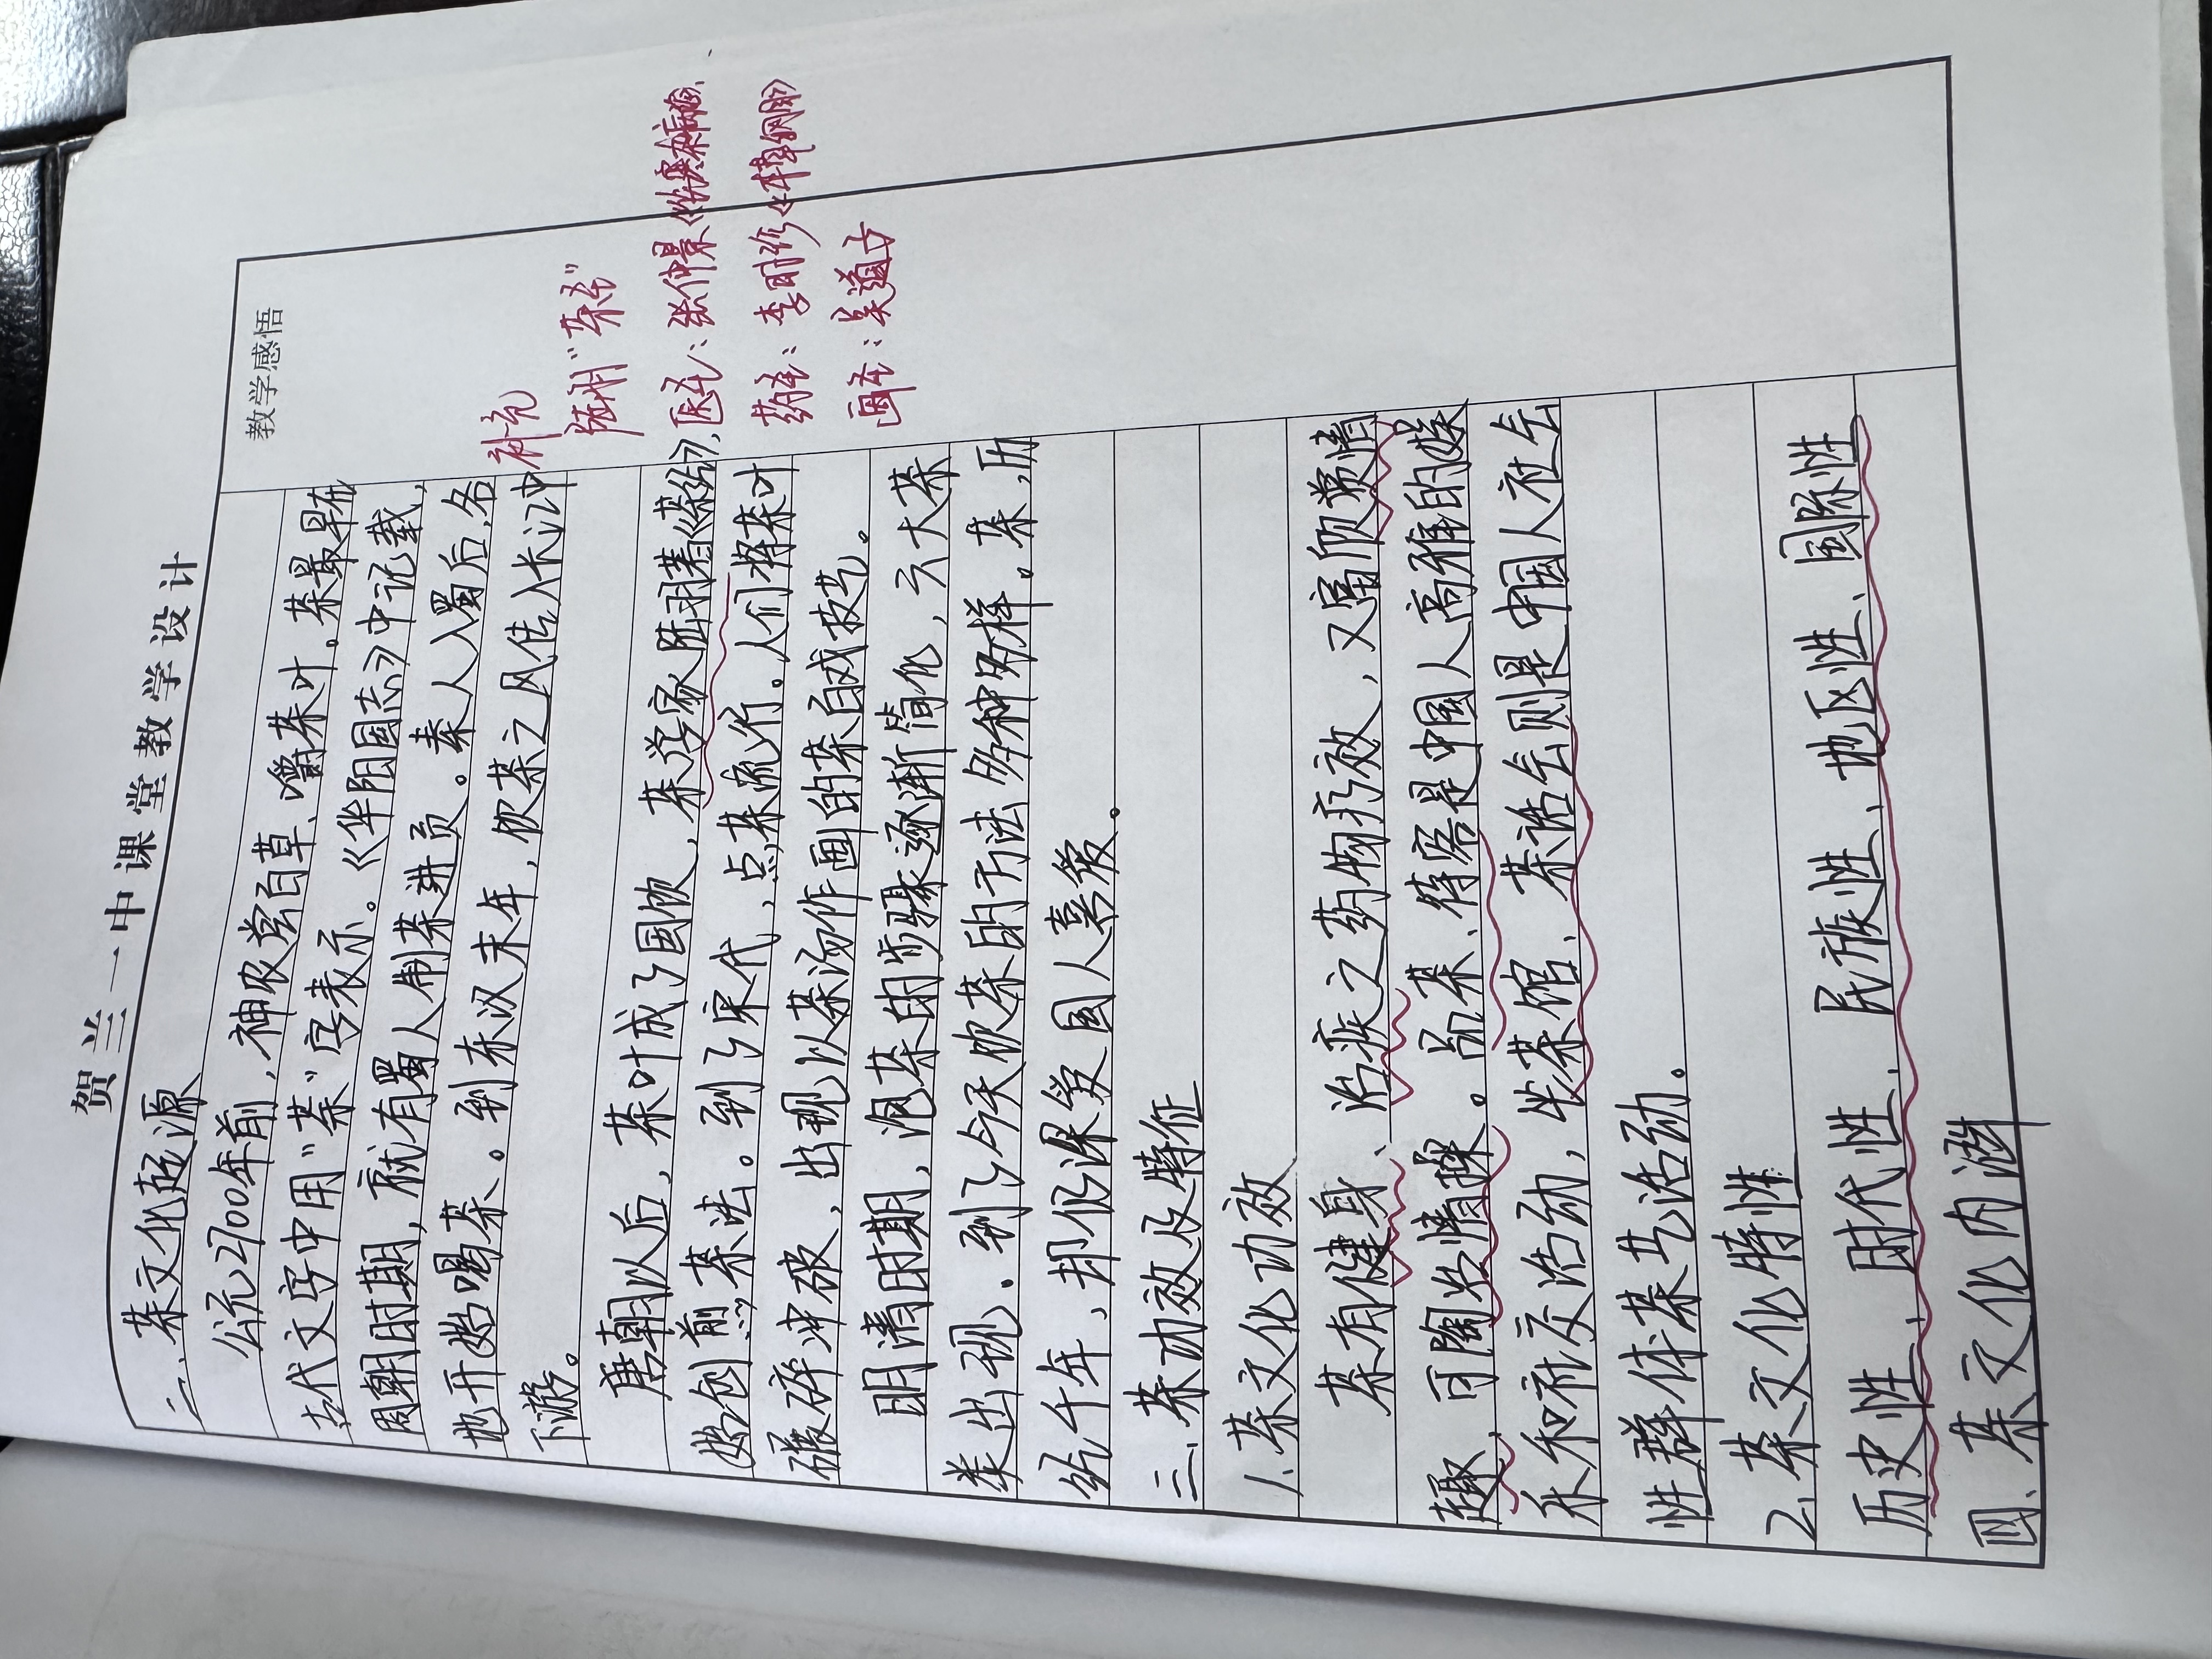 贺兰一中课堂教学设计
教学感悟
二、茶文化起源
公元2700年前,神农尝百草、嚼茶叶。茶最早在
古代文字中用"茶"字表示。《华阳国志》中记载,
周朝时期,就有蜀人制茶进贡。秦人入蜀后,各
地开始喝茶。到东汉末年,饮茶之风传入长江中
下游。
唐朝以后,茶叶成了国饮,茶学家陆羽著《茶经》,
始创煎茶法。到了宋代,点茶流行。人们将茶叶
碾碎冲破,出现以茶汤作画的茶百戏技艺。
明清时期,泡茶的步骤逐渐简化,六大茶
类出现。到了今天饮茶的方法多种多样。茶,历
经千年,却仍深受国人喜爱。
三、茶功效及特征
1、茶文化功效
茶有健身、治疾之药物疗效,又富欣赏情
趣,可陶冶情操。品茶、待客是中国人高雅的娱
乐和社交活动,坐茶馆、茶话会则是中国人社会
性群体茶艺活动。
2、茶文化特性
历史性、时代性、民族性、地区性、国际性
四、茶文化内涵
补充
陆羽"茶圣"
医圣:张仲景《伤寒杂病论》
药圣:李时珍《本草纲目》
画圣:吴道子